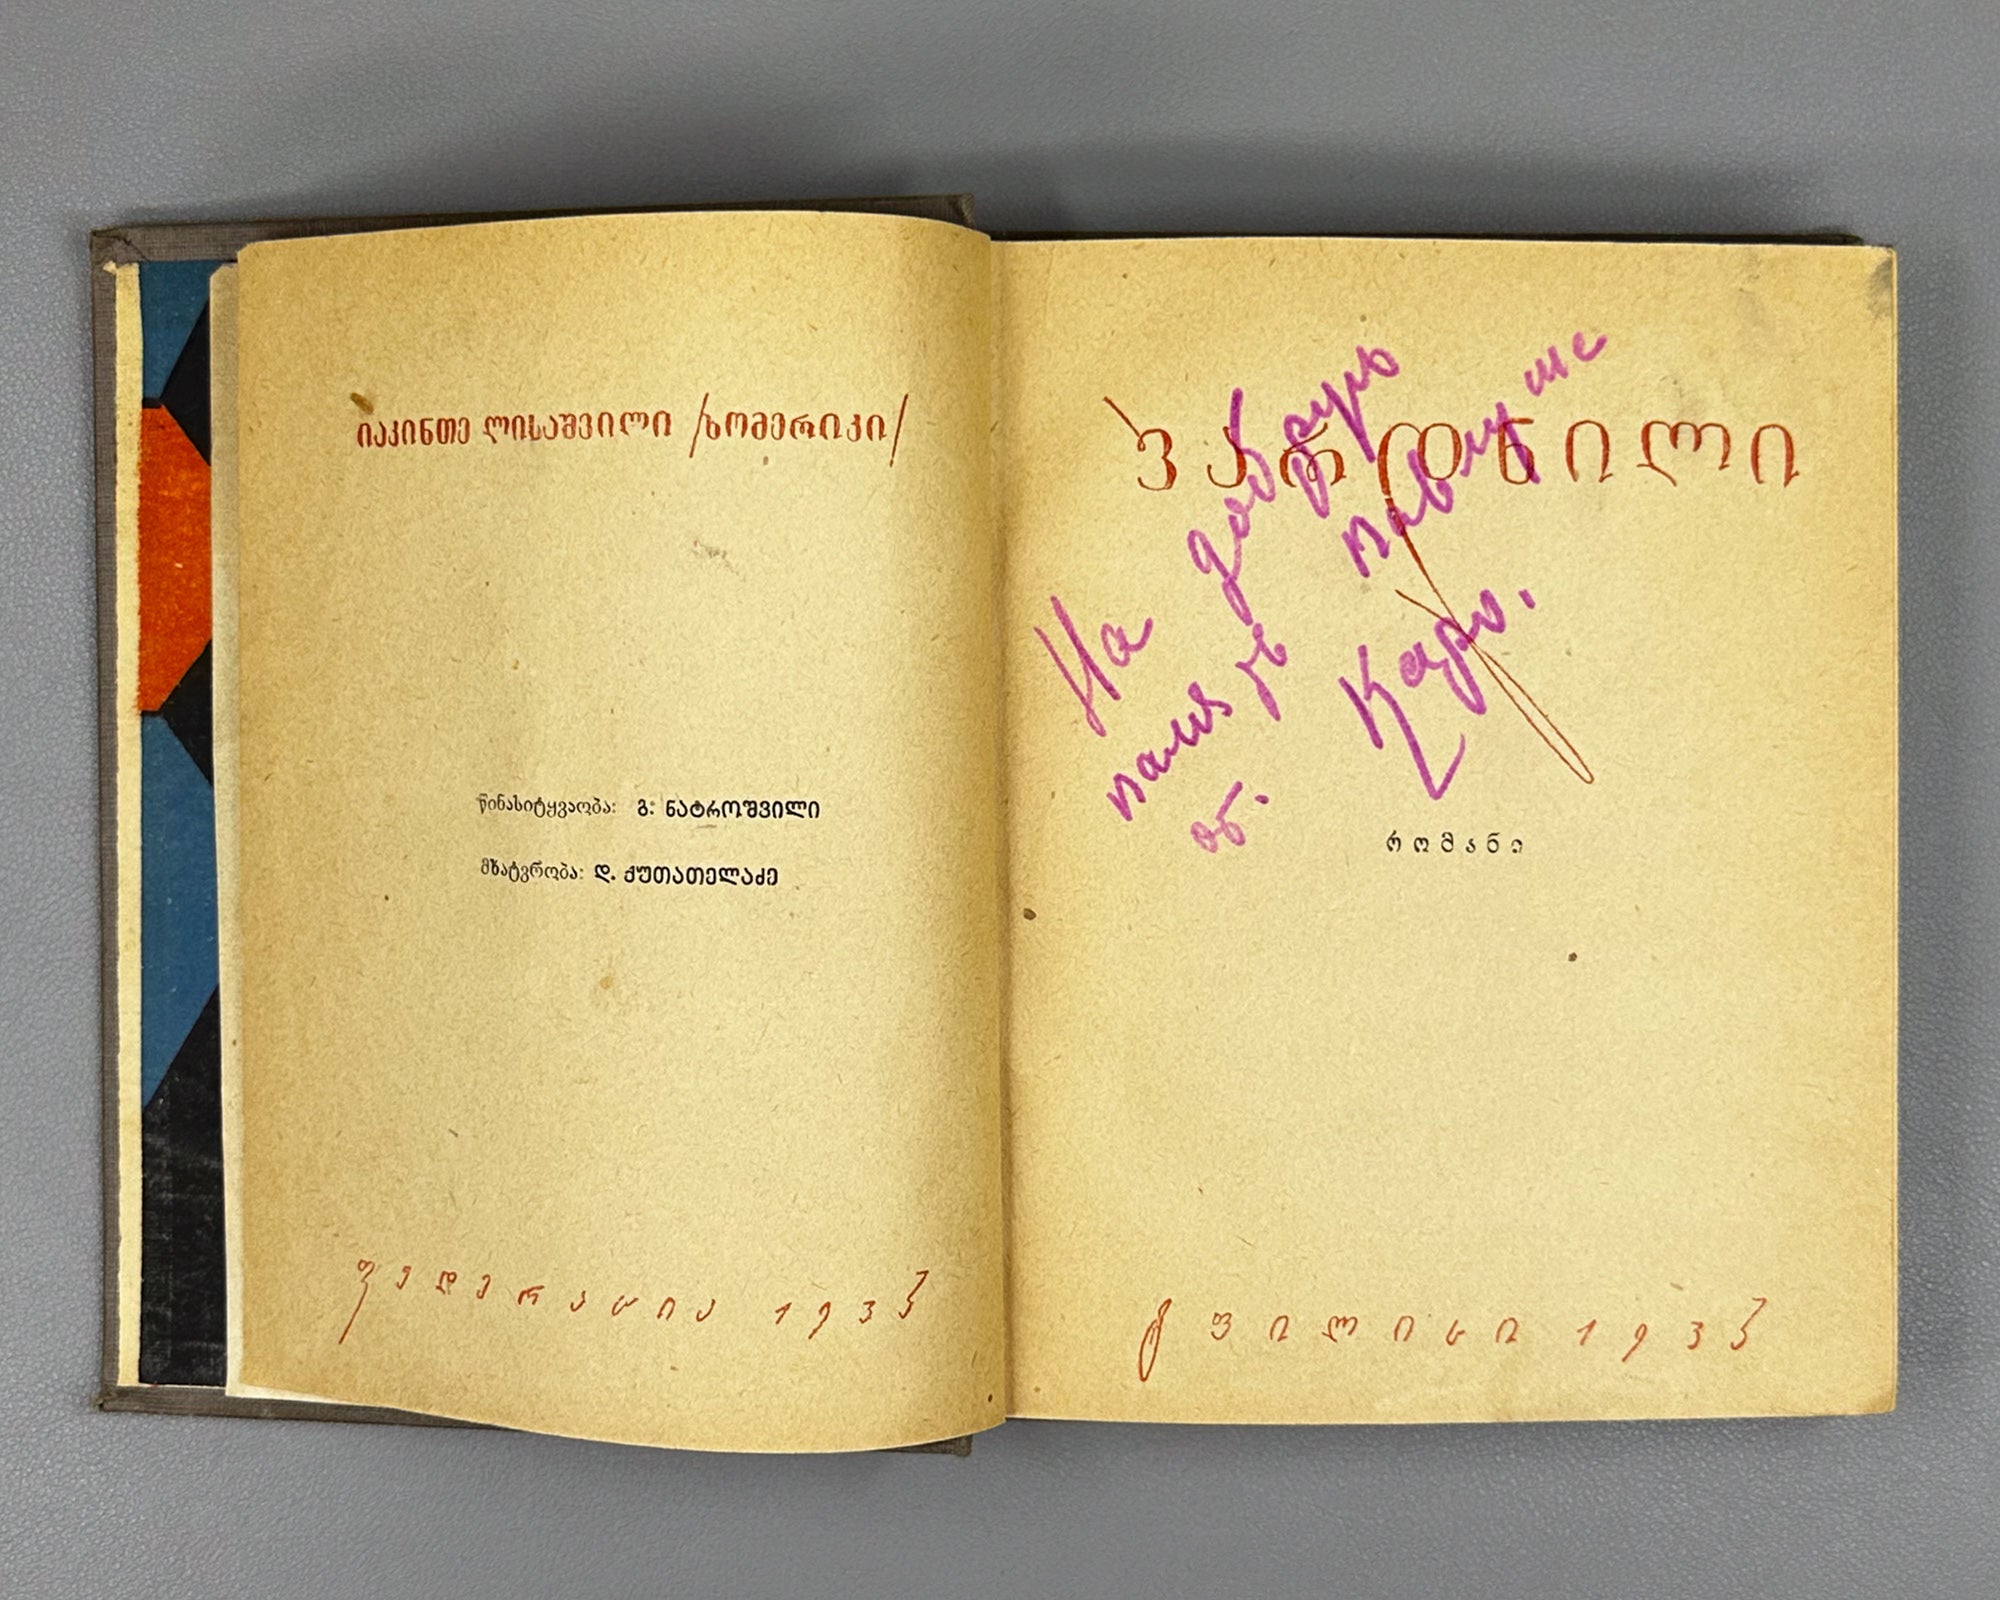 იაკინთე ლისაშვილი /ხომერიკი/
წინასიტყვაობა: გ. ნატროშვილი
მხატვრობა: დ. ქუთათელაძე
ფედერაცია 1933
ვარდნილი
На добрую
память
от.
Каро.
რომანი
ტფილისი 1933